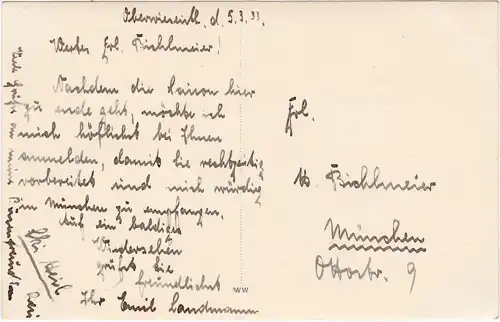 Oberwiesenth. d. 5.3.33.
Wertes Frl. Bichlmeier!
Nachdem die Saison hier
zu ende geht, möchte ich
mich höflichst bei Ihnen
anmelden, damit Sie rechtzeitig
vorbereitet sind mich würdig
in München zu empfangen.
Auf ein baldiges
Wiedersehen
grüßt Sie
freundlichst
Ihr Emil Landmann
Ski Heil
Frl.
Bichlmeier
München
Ottostr. 9
WW